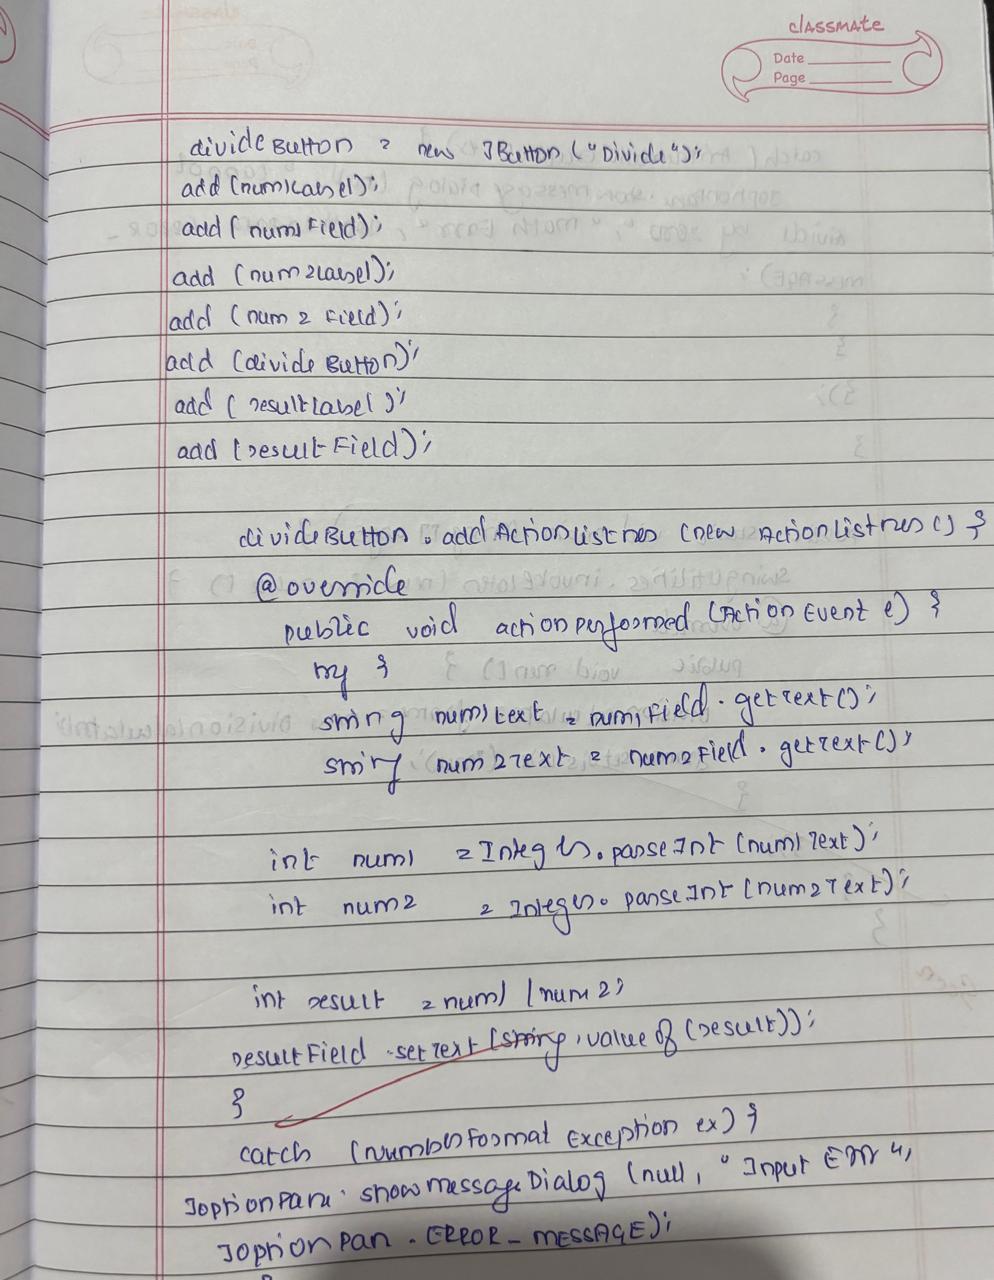 classmate
Date
Page
divideButton = new JButton ("Divide");
add (num1Label);
add (num1Field);
add (num2Label);
add (num2Field);
add (divideButton);
add (resultLabel);
add (resultField);
divideButton . addActionListner (new ActionListner () {
@override
public void actionPerformed (Action Event e) {
try {
string num1text = num1Field . getText();
string num2Text = num2Field . getText();
int num1 = Integer . parseInt (num1Text);
int num2 = Integer . parseInt (num2Text);
int result = num1 / num2;
resultField . setText (string . valueOf (result));
}
catch (Number Format Exception ex) {
JoptionPane . showmessageDialog (null, "Input Err",
Joption pan . ERROR_MESSAGE);
}